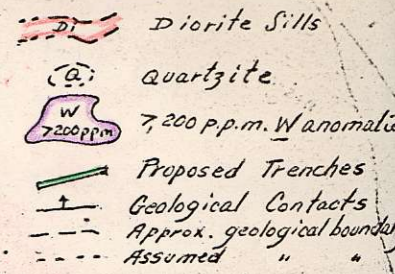 Di Diorite Sills
Q Quartzite
W
>200ppm >,200 p.p.m. W anomalie
Proposed Trenches
Geological Contacts
Approx. geological boundar
Assumed " "